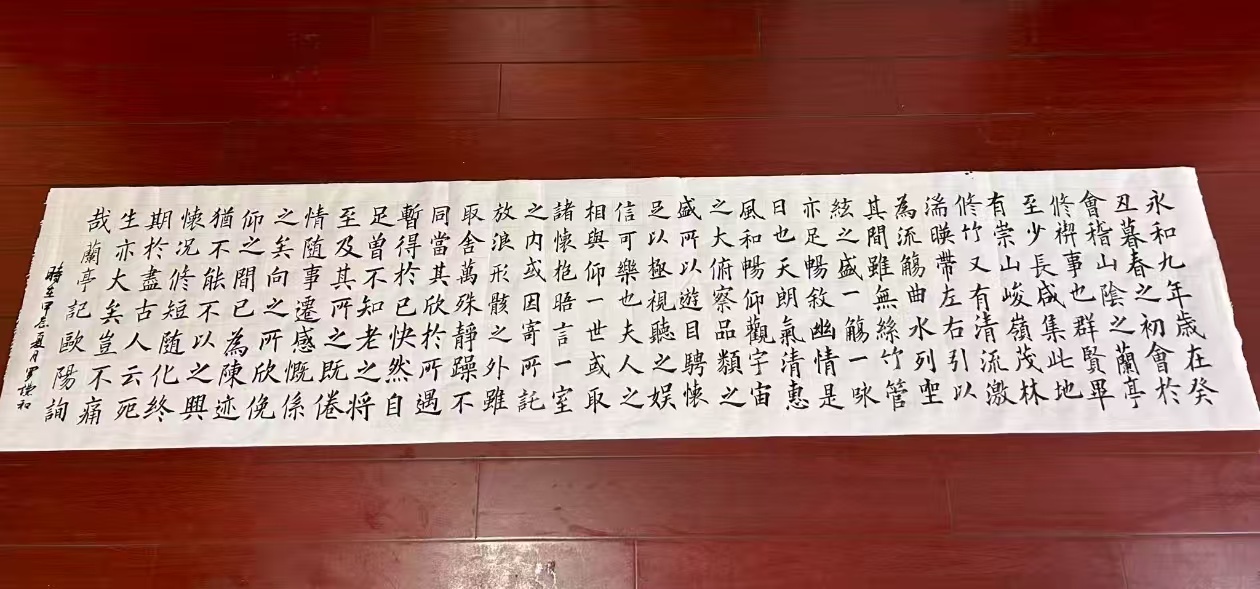 永和九年歲在癸
丑暮春之初會於
會稽山陰之蘭亭
修禊事也群賢畢
至少長咸集此地
有崇山峻嶺茂林
修竹又有清流激
湍暎帶左右引以
為流觴曲水列坐
其間雖無絲竹管
絃之盛一觴一咏
亦足暢敘幽情是
日也天朗氣清惠
風和暢仰觀宇宙
之大俯察品類之
盛所以遊目騁懷
足以極視聽之娱
信可樂也夫人之
相與仰一世或取
諸懷抱晤言一室
之内或因寄所託
放浪形骸之外雖
取舍萬殊靜躁不
同當其欣於所遇
暫得於已快然自
足曾不知老之将
至及其所之既倦
情随事遷感慨係
之矣向之所欣俛
仰之間已為陳迹
猶不能不以之興
懷况修短随化終
期於盡古人云死
生亦大矣豈不痛
哉蘭亭記歐陽詢
時在甲辰夏月